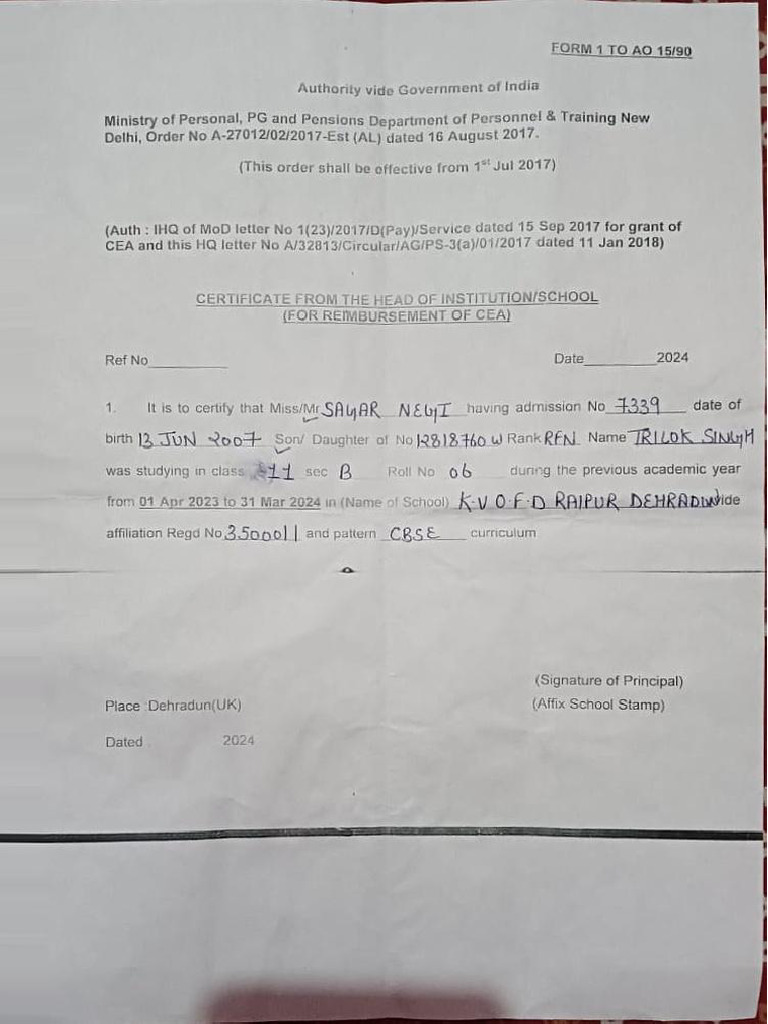 FORM 1 TO AO 15/90
Authority vide Government of India
Ministry of Personal, PG and Pensions Department of Personnel & Training New
Delhi, Order No A-27012/02/2017-Est (AL) dated 16 August 2017.
(This order shall be effective from 1st Jul 2017)
(Auth : IHQ of MoD letter No 1(23)/2017/D(Pay)/Service dated 15 Sep 2017 for grant of
CEA and this HQ letter No A/32813/Circular/AG/PS-3(a)/01/2017 dated 11 Jan 2018)
CERTIFICATE FROM THE HEAD OF INSTITUTION/SCHOOL
(FOR REIMBURSEMENT OF CEA)
Ref No__________ Date_________2024
1. It is to certify that Miss/Mr SAGAR NEGI having admission No 7339 date of
birth 13 JUN 2007 Son/ Daughter of No 12818760 W Rank RFN Name TRILOK SINGH
was studying in class 11 sec B Roll No 06 during the previous academic year
from 01 Apr 2023 to 31 Mar 2024 in (Name of School) K.V O.F.D RAIPUR DEHRADUN vide
affiliation Regd No 3500011 and pattern CBSE curriculum
(Signature of Principal)
Place :Dehradun(UK) (Affix School Stamp)
Dated 2024